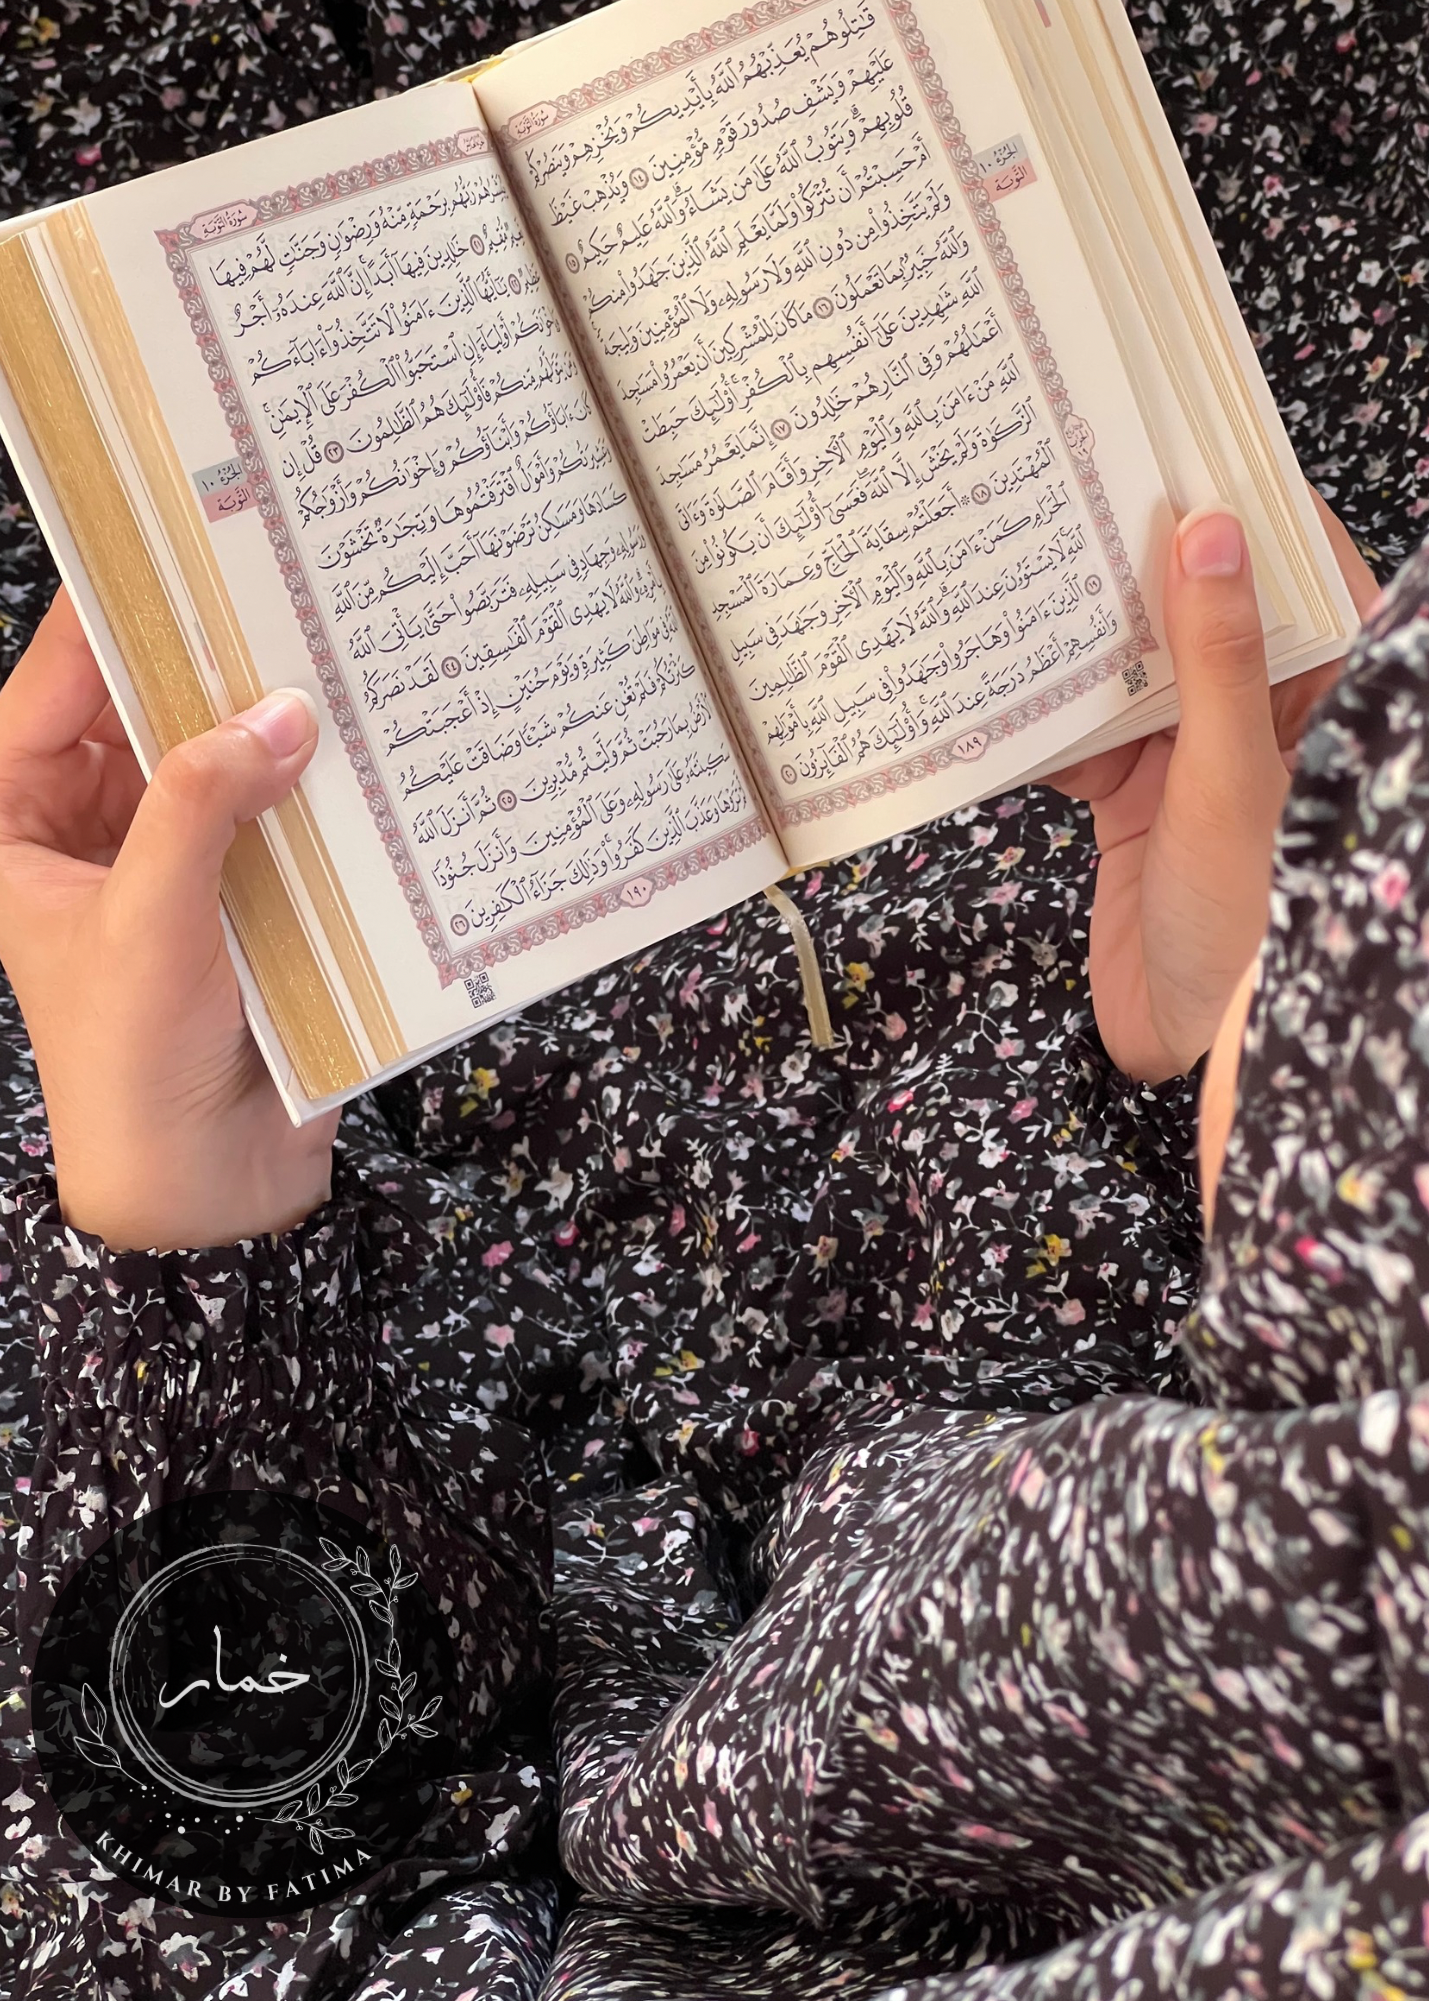 سُورَةُ التَّوْبَةِ
قَٰتِلُوهُمْ يُعَذِّبْهُمُ ٱللَّهُ بِأَيْدِيكُمْ وَيُخْزِهِمْ وَيَنصُرْكُمْ
عَلَيْهِمْ وَيَشْفِ صُدُورَ قَوْمٍ مُّؤْمِنِينَ ١٤ وَيُذْهِبْ غَيْظَ
قُلُوبِهِمْ ۗ وَيَتُوبُ ٱللَّهُ عَلَىٰ مَن يَشَآءُ ۗ وَٱللَّهُ عَلِيمٌ حَكِيمٌ ١٥
أَمْ حَسِبْتُمْ أَن تُتْرَكُوا۟ وَلَمَّا يَعْلَمِ ٱللَّهُ ٱلَّذِينَ جَٰهَدُوا۟ مِنكُمْ
وَلَمْ يَتَّخِذُوا۟ مِن دُونِ ٱللَّهِ وَلَا رَسُولِهِۦ وَلَا ٱلْمُؤْمِنِينَ وَلِيجَةً ۚ
وَٱللَّهُ خَبِيرٌۢ بِمَا تَعْمَلُونَ ١٦ مَا كَانَ لِلْمُشْرِكِينَ أَن يَعْمُرُوا۟ مَسَٰجِدَ
ٱللَّهِ شَٰهِدِينَ عَلَىٰٓ أَنفُسِهِم بِٱلْكُفْرِ ۚ أُو۟لَٰٓئِكَ حَبِطَتْ
أَعْمَٰلُهُمْ وَفِى ٱلنَّارِ هُمْ خَٰلِدُونَ ١٧ إِنَّمَا يَعْمُرُ مَسَٰجِدَ
ٱللَّهِ مَنْ ءَامَنَ بِٱللَّهِ وَٱلْيَوْمِ ٱلْءَاخِرِ وَأَقَامَ ٱلصَّلَوٰةَ وَءَاتَى
ٱلزَّكَوٰةَ وَلَمْ يَخْشَ إِلَّا ٱللَّهَ ۖ فَعَسَىٰٓ أُو۟لَٰٓئِكَ أَن يَكُونُوا۟ مِنَ
ٱلْمُهْتَدِينَ ١٨ ۞ أَجَعَلْتُمْ سِقَايَةَ ٱلْحَآجِّ وَعِمَارَةَ ٱلْمَسْجِدِ
ٱلْحَرَامِ كَمَنْ ءَامَنَ بِٱللَّهِ وَٱلْيَوْمِ ٱلْءَاخِرِ وَجَٰهَدَ فِى سَبِيلِ
ٱللَّهِ ۚ لَا يَسْتَوُۥنَ عِندَ ٱللَّهِ ۗ وَٱللَّهُ لَا يَهْدِى ٱلْقَوْمَ ٱلظَّٰلِمِينَ
١٩ ٱلَّذِينَ ءَامَنُوا۟ وَهَاجَرُوا۟ وَجَٰهَدُوا۟ فِى سَبِيلِ ٱللَّهِ بِأَمْوَٰلِهِمْ
وَأَنفُسِهِمْ أَعْظَمُ دَرَجَةً عِندَ ٱللَّهِ ۚ وَأُو۟لَٰٓئِكَ هُمُ ٱلْفَآئِزُونَ ٢٠
١٨٩
الجُزْءُ ١٠
التَّوْبَة
سُورَةُ التَّوْبَةِ
يُبَشِّرُهُمْ رَبُّهُم بِرَحْمَةٍ مِّنْهُ وَرِضْوَٰنٍ وَجَنَّٰتٍ لَّهُمْ فِيهَا
نَعِيمٌ مُّقِيمٌ ٢١ خَٰلِدِينَ فِيهَآ أَبَدًا ۚ إِنَّ ٱللَّهَ عِندَهُۥٓ أَجْرٌ
عَظِيمٌ ٢٢ يَٰٓأَيُّهَا ٱلَّذِينَ ءَامَنُوا۟ لَا تَتَّخِذُوٓا۟ ءَابَآءَكُمْ
وَإِخْوَٰنَكُمْ أَوْلِيَآءَ إِنِ ٱسْتَحَبُّوا۟ ٱلْكُفْرَ عَلَى ٱلْإِيمَٰنِ ۚ
وَمَن يَتَوَلَّهُم مِّنكُمْ فَأُو۟لَٰٓئِكَ هُمُ ٱلظَّٰلِمُونَ ٢٣ قُلْ إِن
كَانَ ءَابَآؤُكُمْ وَأَبْنَآؤُكُمْ وَإِخْوَٰنُكُمْ وَأَزْوَٰجُكُمْ
وَعَشِيرَتُكُمْ وَأَمْوَٰلٌ ٱقْتَرَفْتُمُوهَا وَتِجَٰرَةٌ تَخْشَوْنَ
كَسَادَهَا وَمَسَٰكِنُ تَرْضَوْنَهَآ أَحَبَّ إِلَيْكُم مِّنَ ٱللَّهِ
وَرَسُولِهِۦ وَجِهَادٍ فِى سَبِيلِهِۦ فَتَرَبَّصُوا۟ حَتَّىٰ يَأْتِىَ ٱللَّهُ
بِأَمْرِهِۦ ۗ وَٱللَّهُ لَا يَهْدِى ٱلْقَوْمَ ٱلْفَٰسِقِينَ ٢٤ لَقَدْ نَصَرَكُمُ
ٱللَّهُ فِى مَوَاطِنَ كَثِيرَةٍ ۙ وَيَوْمَ حُنَيْنٍ ۙ إِذْ أَعْجَبَتْكُمْ
كَثْرَتُكُمْ فَلَمْ تُغْنِ عَنكُمْ شَيْـًٔا وَضَاقَتْ عَلَيْكُمُ
ٱلْأَرْضُ بِمَا رَحُبَتْ ثُمَّ وَلَّيْتُم مُّدْبِرِينَ ٢٥ ثُمَّ أَنزَلَ ٱللَّهُ
سَكِينَتَهُۥ عَلَىٰ رَسُولِهِۦ وَعَلَى ٱلْمُؤْمِنِينَ وَأَنزَلَ جُنُودًا
لَّمْ تَرَوْهَا وَعَذَّبَ ٱلَّذِينَ كَفَرُوا۟ ۚ وَذَٰلِكَ جَزَآءُ ٱلْكَٰفِرِينَ ٢٦
١٩٠
الجُزْءُ ١٠
التَّوْبَة
خمار
KHIMAR BY FATIMA